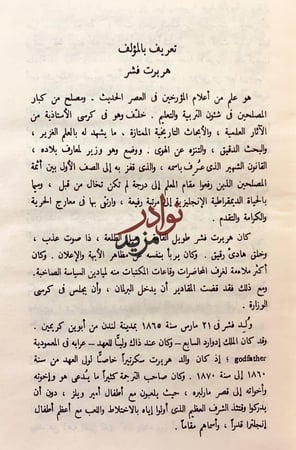 تعريف بالمؤلف
هربرت فشر
هو علم من أعلام المؤرخين فى العصر الحديث . ومصلح من كبار
المصلحين فى شئون التربية والتعليم . خلّف وهو فى كرسى الأستاذية من
الآثار العلمية ، والأبحاث التاريخية الممتازة . ما يشهد له بالعلم الغزير ،
والبحث الدقيق ، والتنزه عن الهوى . ووضع وهو وزير لمعارف بلاده ،
القانون الشهير الذى عُرف باسمه ، والذى قفز به إلى الصف الأول بين أئمة
المصلحين الذين رفعوا مقام المعلم إلى درجة لم تكن تخال من قبل ، وسما
بالحياة الديمقراطية الإنجليزية إلى مرتبة رفيعة ، وارتقى بها فى معارج الحرية
والكرامة والتقدم .
كان هربرت فشر طويل الطلعة ، ذا صوت عذب ،
وخلق هادئ رقيق . وكان يربأ بنفسه مظاهر الأبهة والإعلان . وكان
أكثر ملاءمة لغرف المحاضرات وقاعات المكتبات منه لميادين السياسة الصاخبة .
ومع ذلك فقد قضت المقادير أن يدخل البرلمان ، وأن يجلس فى كرسى
الوزارة .
وُلد فشر فى ٢١ مارس سنة ١٨٦٥ بمدينة لندن من أبوين كريمين .
وقد كان الملك إدوارد السابع – وكان وليًّا للعهد – عرابه فى المعمودية
godfather ؛ إذ كان والد هربرت سكرتيراً خاصًّا لولى العهد من سنة
١٨٦٠ إلى سنة ١٨٧٠ . وكان صاحب الترجمة كثيراً ما يُدعى هو وإخوته
وأخواته إلى قصر مارلبره ، حيث يلعبون مع أطفال أمير ويلز ، دون أن
يدركوا وقتئذ الشرف العظيم الذى أولوا إياه بالاختلاط واللعب مع أعظم أطفال
إنجلترا قدراً ، وأسماهم مقاماً .
نوادر
مزيد